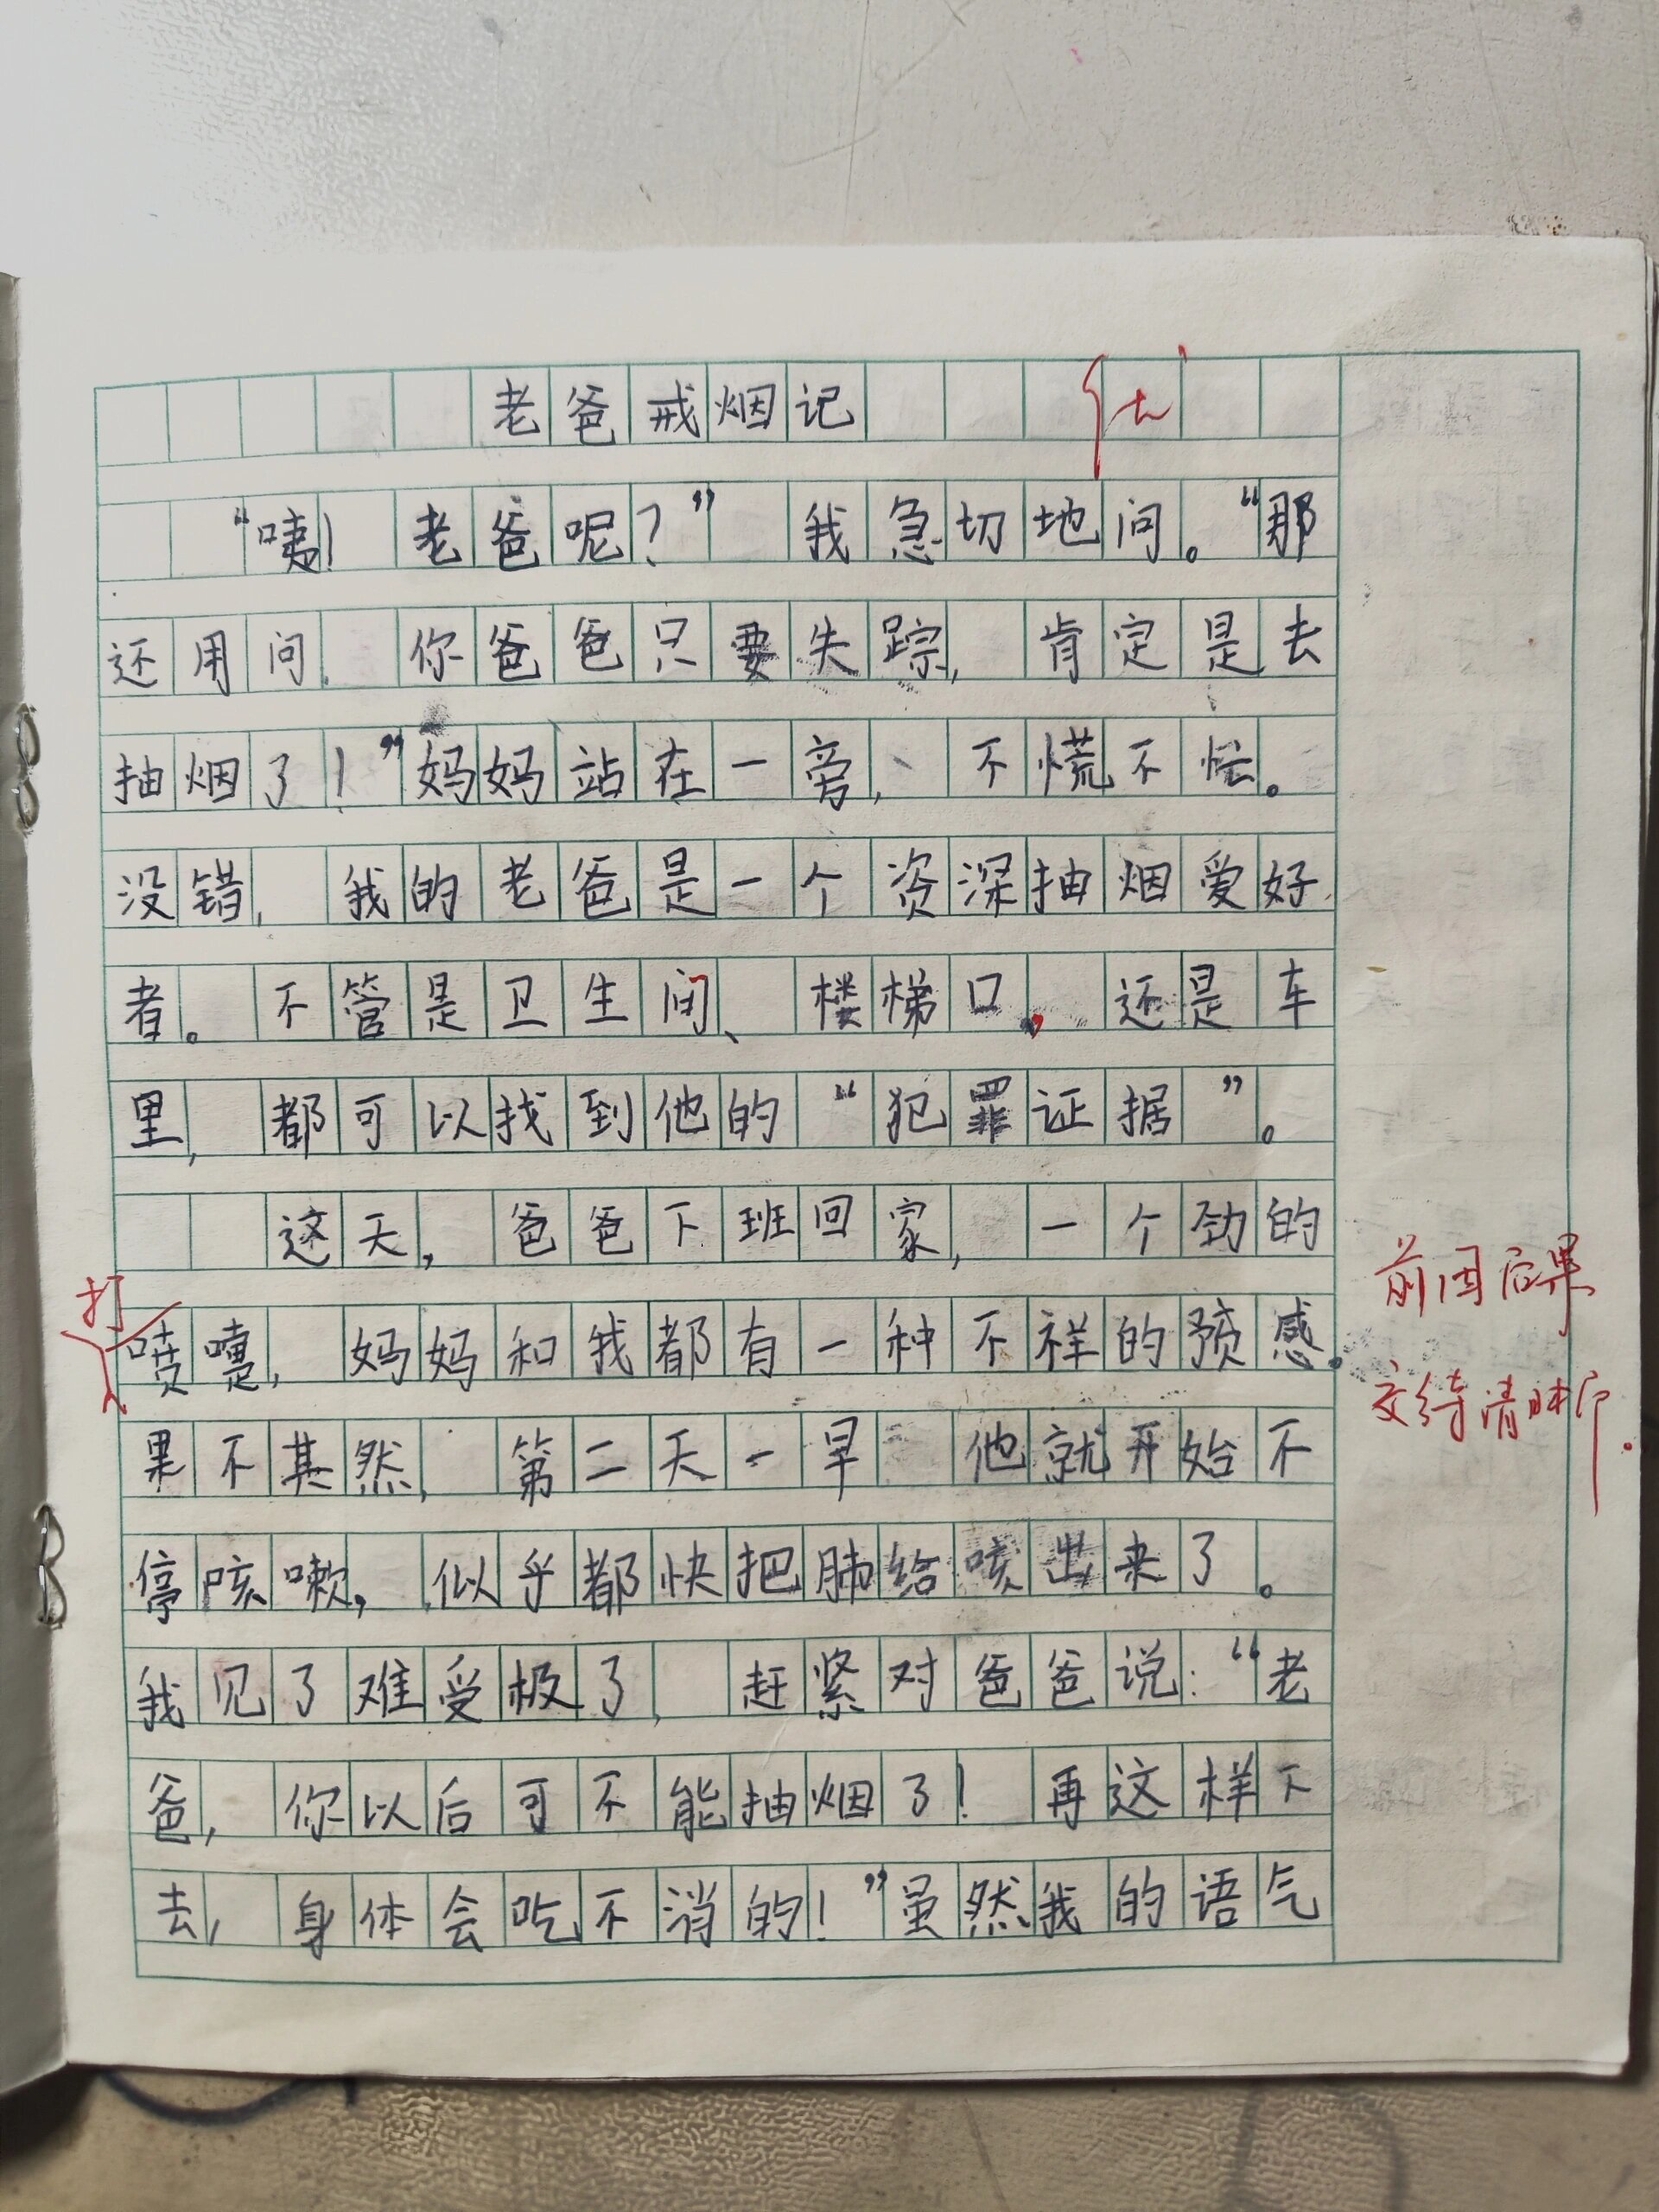 老爸戒烟记
“咦！老爸呢？”我急切地问。“那
还用问，你爸爸只要失踪，肯定是去
抽烟了！”妈妈站在一旁，不慌不忙。
没错，我的老爸是一个资深抽烟爱好
者。不管是卫生间、楼梯口，还是车
里，都可以找到他的“犯罪证据”。
这天，爸爸下班回家，一个劲的
打
喷嚏，妈妈和我都有一种不祥的预感。
前因后果
交待清晰。
果不其然，第二天一早 他就开始不
停咳嗽，似乎都快把肺给咳出来了。
我见了难受极了，赶紧对爸爸说：“老
爸，你以后可不能抽烟了！再这样下
去，身体会吃不消的！”虽然我的语气